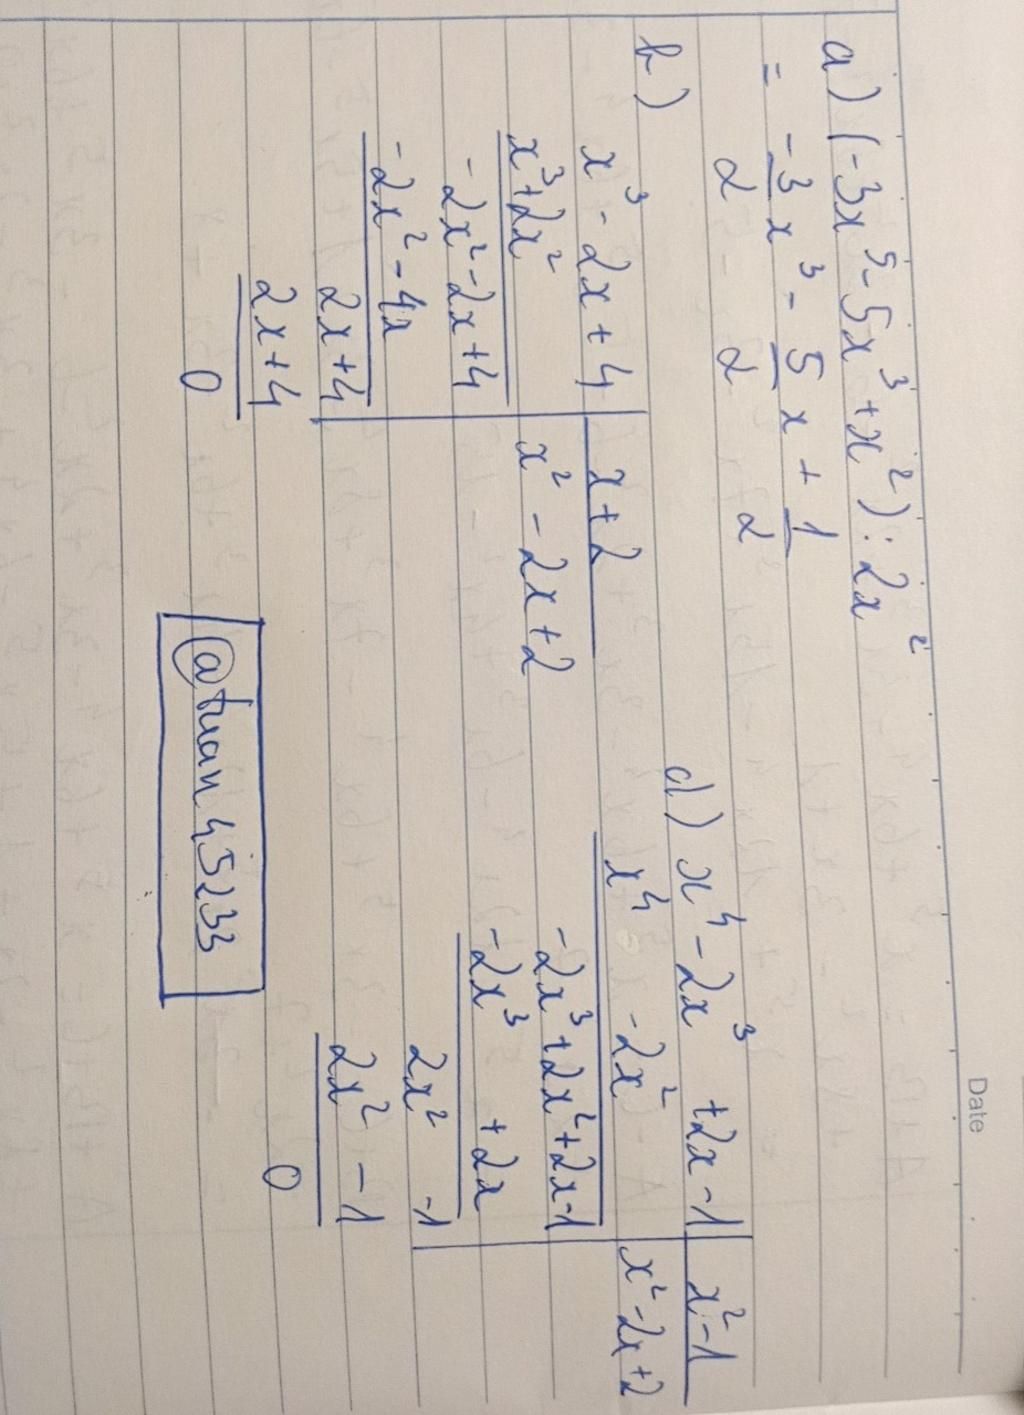 Date
a) (-3x⁵ - 5x³ + x²) : 2x²
= -3/2 x³ - 5/2 x + 1/2
b)
x³ - 2x + 4 | x + 2
x³ + 2x² | x² - 2x + 2
-2x² - 2x + 4
-2x² - 4x
2x + 4
2x + 4
0
d) x⁴ - 2x³ + 2x - 1 | x² - 1
x⁴ - 2x² | x² - 2x + 2
-2x³ + 2x² + 2x - 1
-2x³ + 2x
2x² - 1
2x² - 1
0
@tuan45233